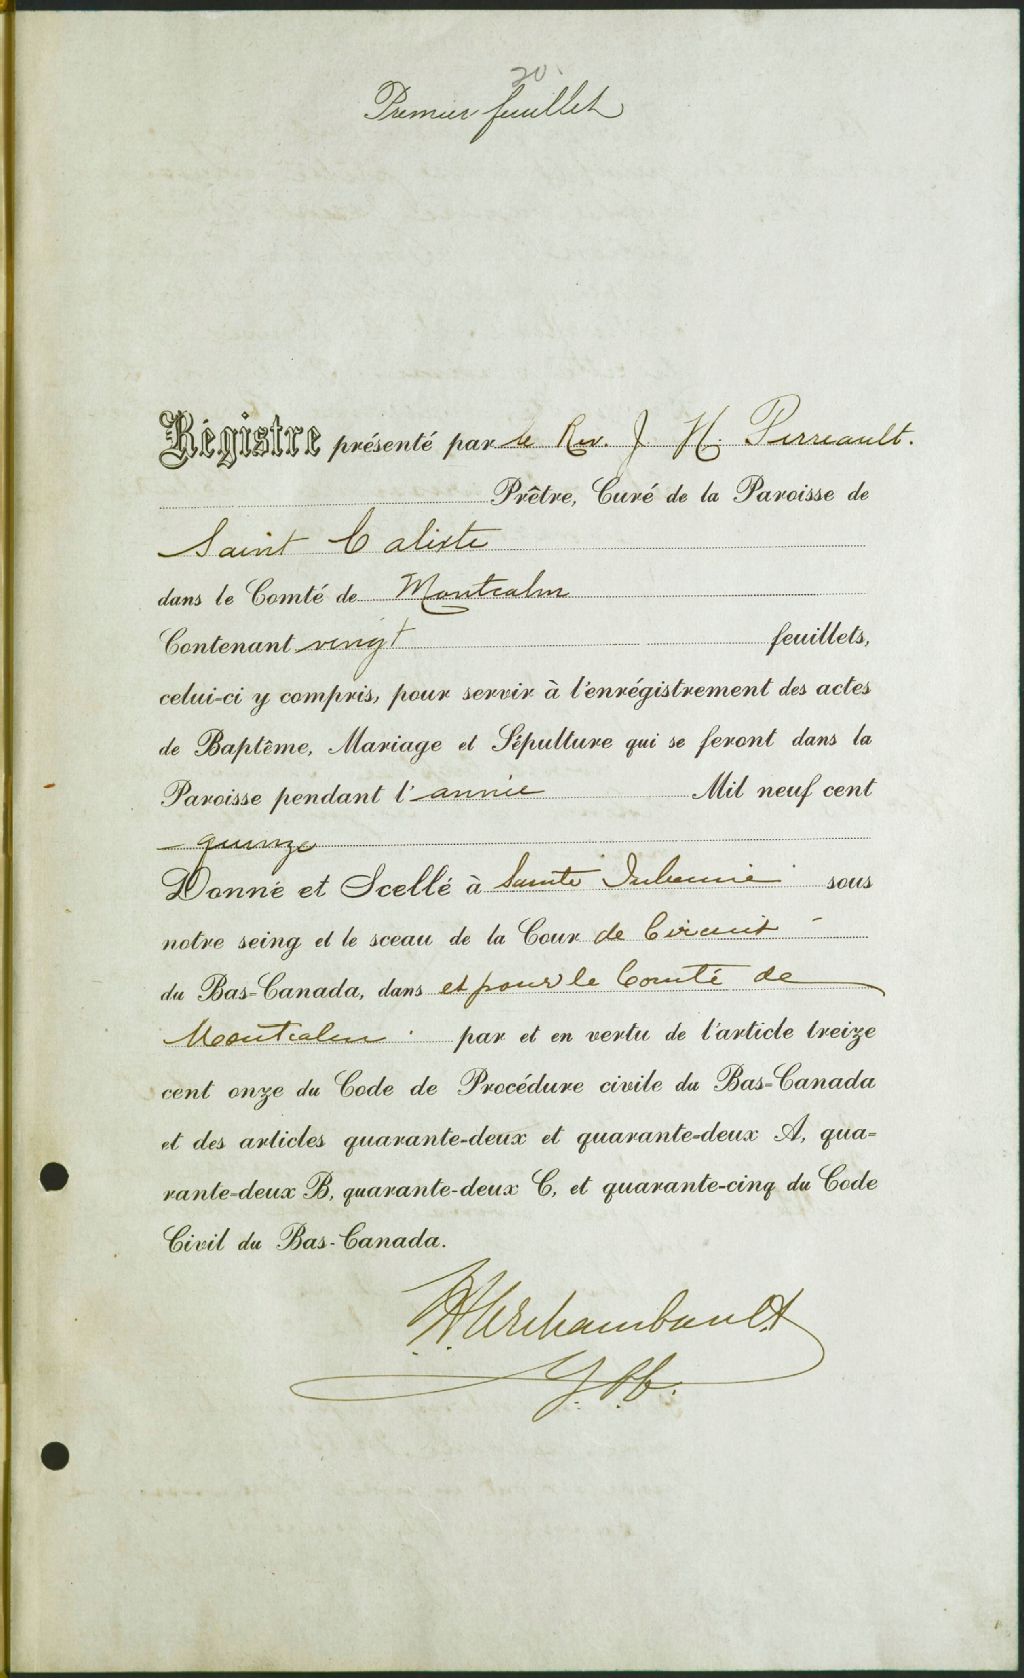 20
Premier feuillet
Régistre présenté par le Rev. J. H. Perreault.
Prêtre, Curé de la Paroisse de
Saint Calixte
dans le Comté de Montcalm
Contenant vingt feuillets,
celui-ci y compris, pour servir à l'enrégistrement des actes
de Baptême, Mariage et Sépulture qui se feront dans la
Paroisse pendant l'année Mil neuf cent
quinze
Donné et Scellé à Sainte Julienne sous
notre seing et le sceau de la Cour de Circuit
du Bas-Canada, dans et pour le Comté de
Montcalm. par et en vertu de l'article treize
cent onze du Code de Procédure civile du Bas-Canada
et des articles quarante-deux et quarante-deux A, qua-
rante-deux B, quarante-deux C, et quarante-cinq du Code
Civil du Bas-Canada.
Archambault